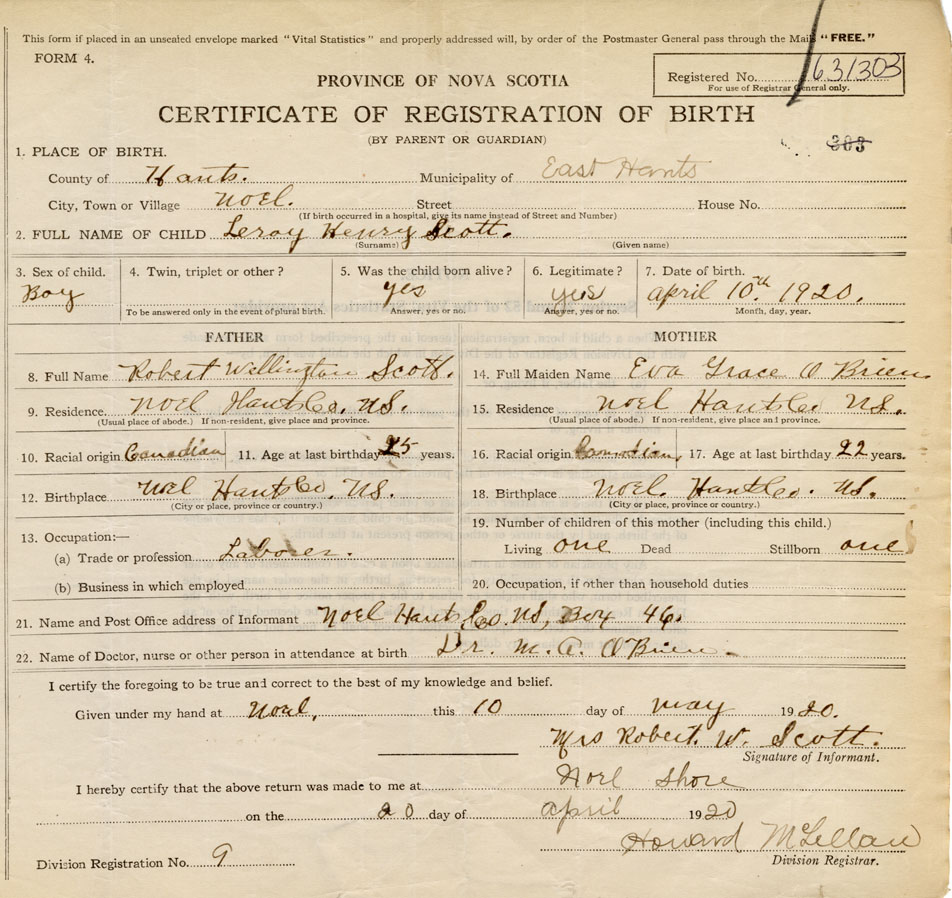 This form if placed in an unsealed envelope marked "Vital Statistics" and properly addressed will, by order of the Postmaster General pass through the Mails "FREE."
FORM 4.
Registered No. 631303
For use of Registrar General only.
PROVINCE OF NOVA SCOTIA
CERTIFICATE OF REGISTRATION OF BIRTH
(BY PARENT OR GUARDIAN)
303
1. PLACE OF BIRTH.
County of Hants. Municipality of East Hants
City, Town or Village Noel. Street House No.
(If birth occurred in a hospital, give its name instead of Street and Number)
2. FULL NAME OF CHILD Leroy Henry Scott.
(Surname) (Given name)
3. Sex of child. 4. Twin, triplet or other? 5. Was the child born alive? 6. Legitimate? 7. Date of birth.
Boy yes yes April 10th 1920.
To be answered only in the event of plural birth. Answer, yes or no. Answer, yes or no. Month, day, year.
FATHER MOTHER
8. Full Name Robert Wellington Scott. 14. Full Maiden Name Eva Grace O Brien
9. Residence. Noel Hants Co. N.S. 15. Residence Noel Hants Co N.S.
(Usual place of abode.) If non-resident, give place and province. (Usual place of abode.) If non-resident, give place and province.
10. Racial origin Canadian 11. Age at last birthday 25 years. 16. Racial origin Canadian, 17. Age at last birthday 22 years.
12. Birthplace Noel Hants Co. N.S. 18. Birthplace Noel. Hants Co. N.S.
(City or place, province or country.) (City or place, province or country.)
19. Number of children of this mother (including this child.)
13. Occupation:—
(a) Trade or profession Laborer. Living one Dead Stillborn one
(b) Business in which employed 20. Occupation, if other than household duties
21. Name and Post Office address of Informant Noel Hants Co. N.S, Box 46.
22. Name of Doctor, nurse or other person in attendance at birth Dr. M. A. O'Brien.
I certify the foregoing to be true and correct to the best of my knowledge and belief.
Given under my hand at Noel, this 10 day of May 1920.
Mrs Robert. W. Scott.
Signature of Informant.
I hereby certify that the above return was made to me at Noel Shore
on the 20 day of April 1920
Howard McLellan
Division Registration No. 9 Division Registrar.